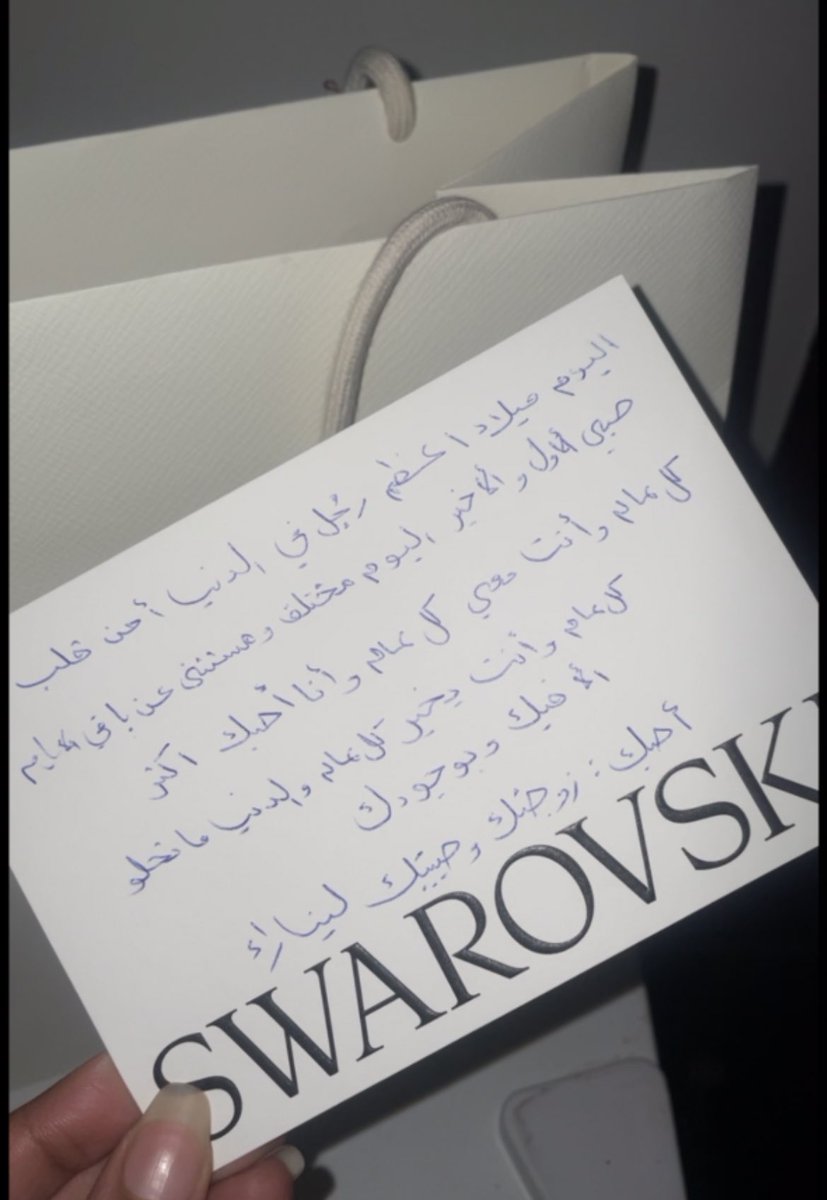 اليوم ميلاد اعظم رجل في الدنيا أحن قلب
حبيبي الأول و الأخير اليوم مختلف ومستثنى عن باقي الايام
كل عام وأنت معي كل عام وأنا أحبك اكثر
كل عام وأنت بخير كل عام والدنيا ماتحلو
الا فيك وبوجودك
أحبك : زوجتك وحبيبتك
SWAROVSKI